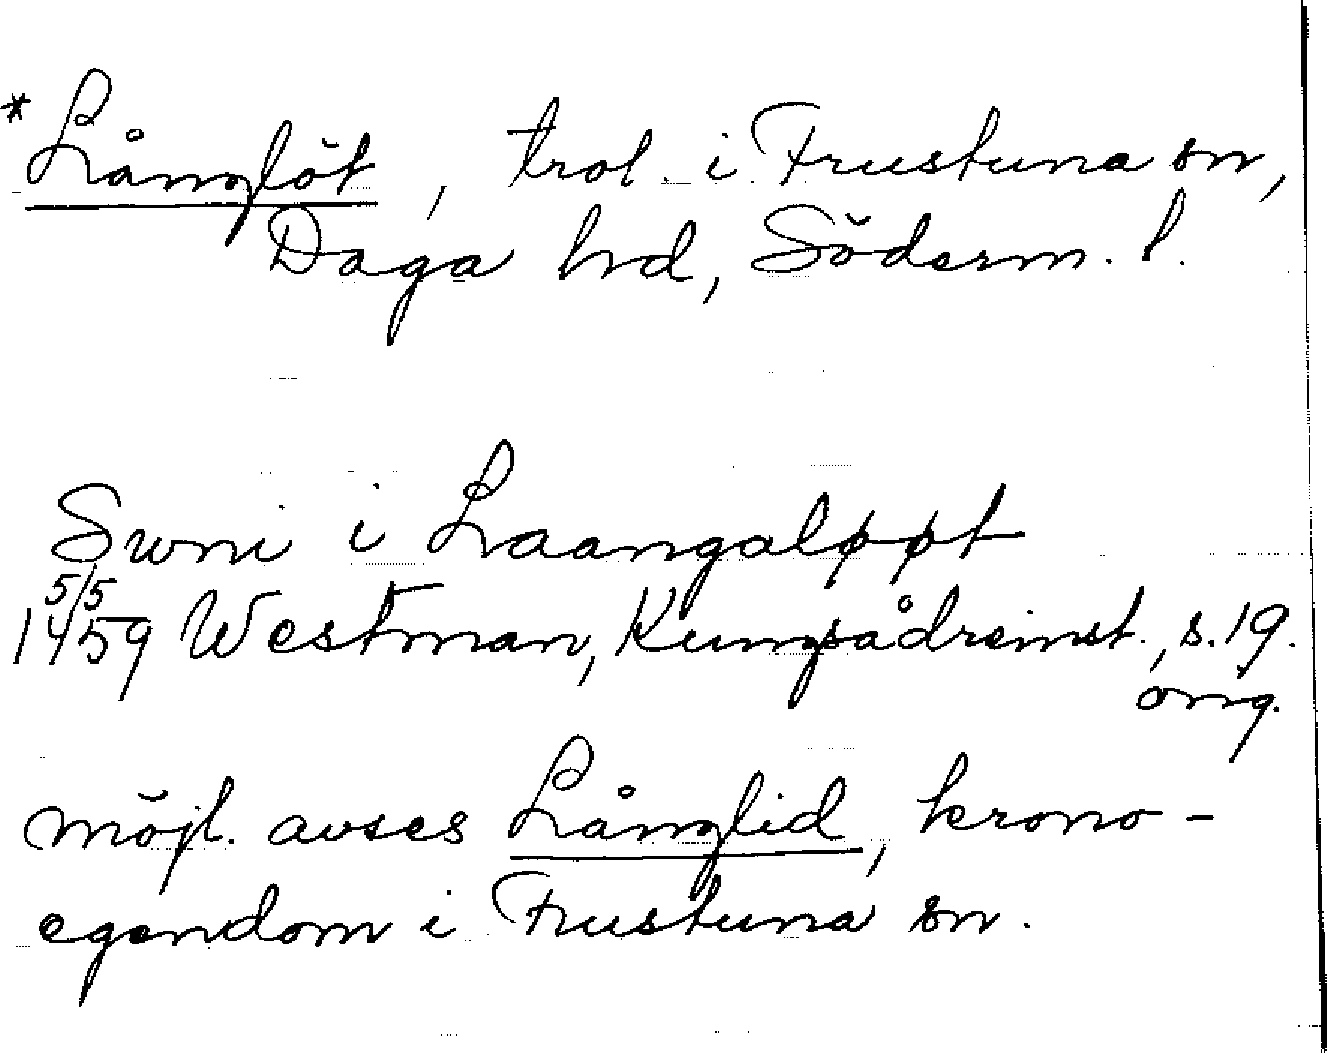 *Långlöt, trol. i Frustuna sn,
Daga hd, Söderm. l.
Swni i Laangaløpt
5/5
1459 Westman, Kungsådreinst., s. 19.
orig.
möjl. avses Långlid, krono-
egendom i Frustuna sn.